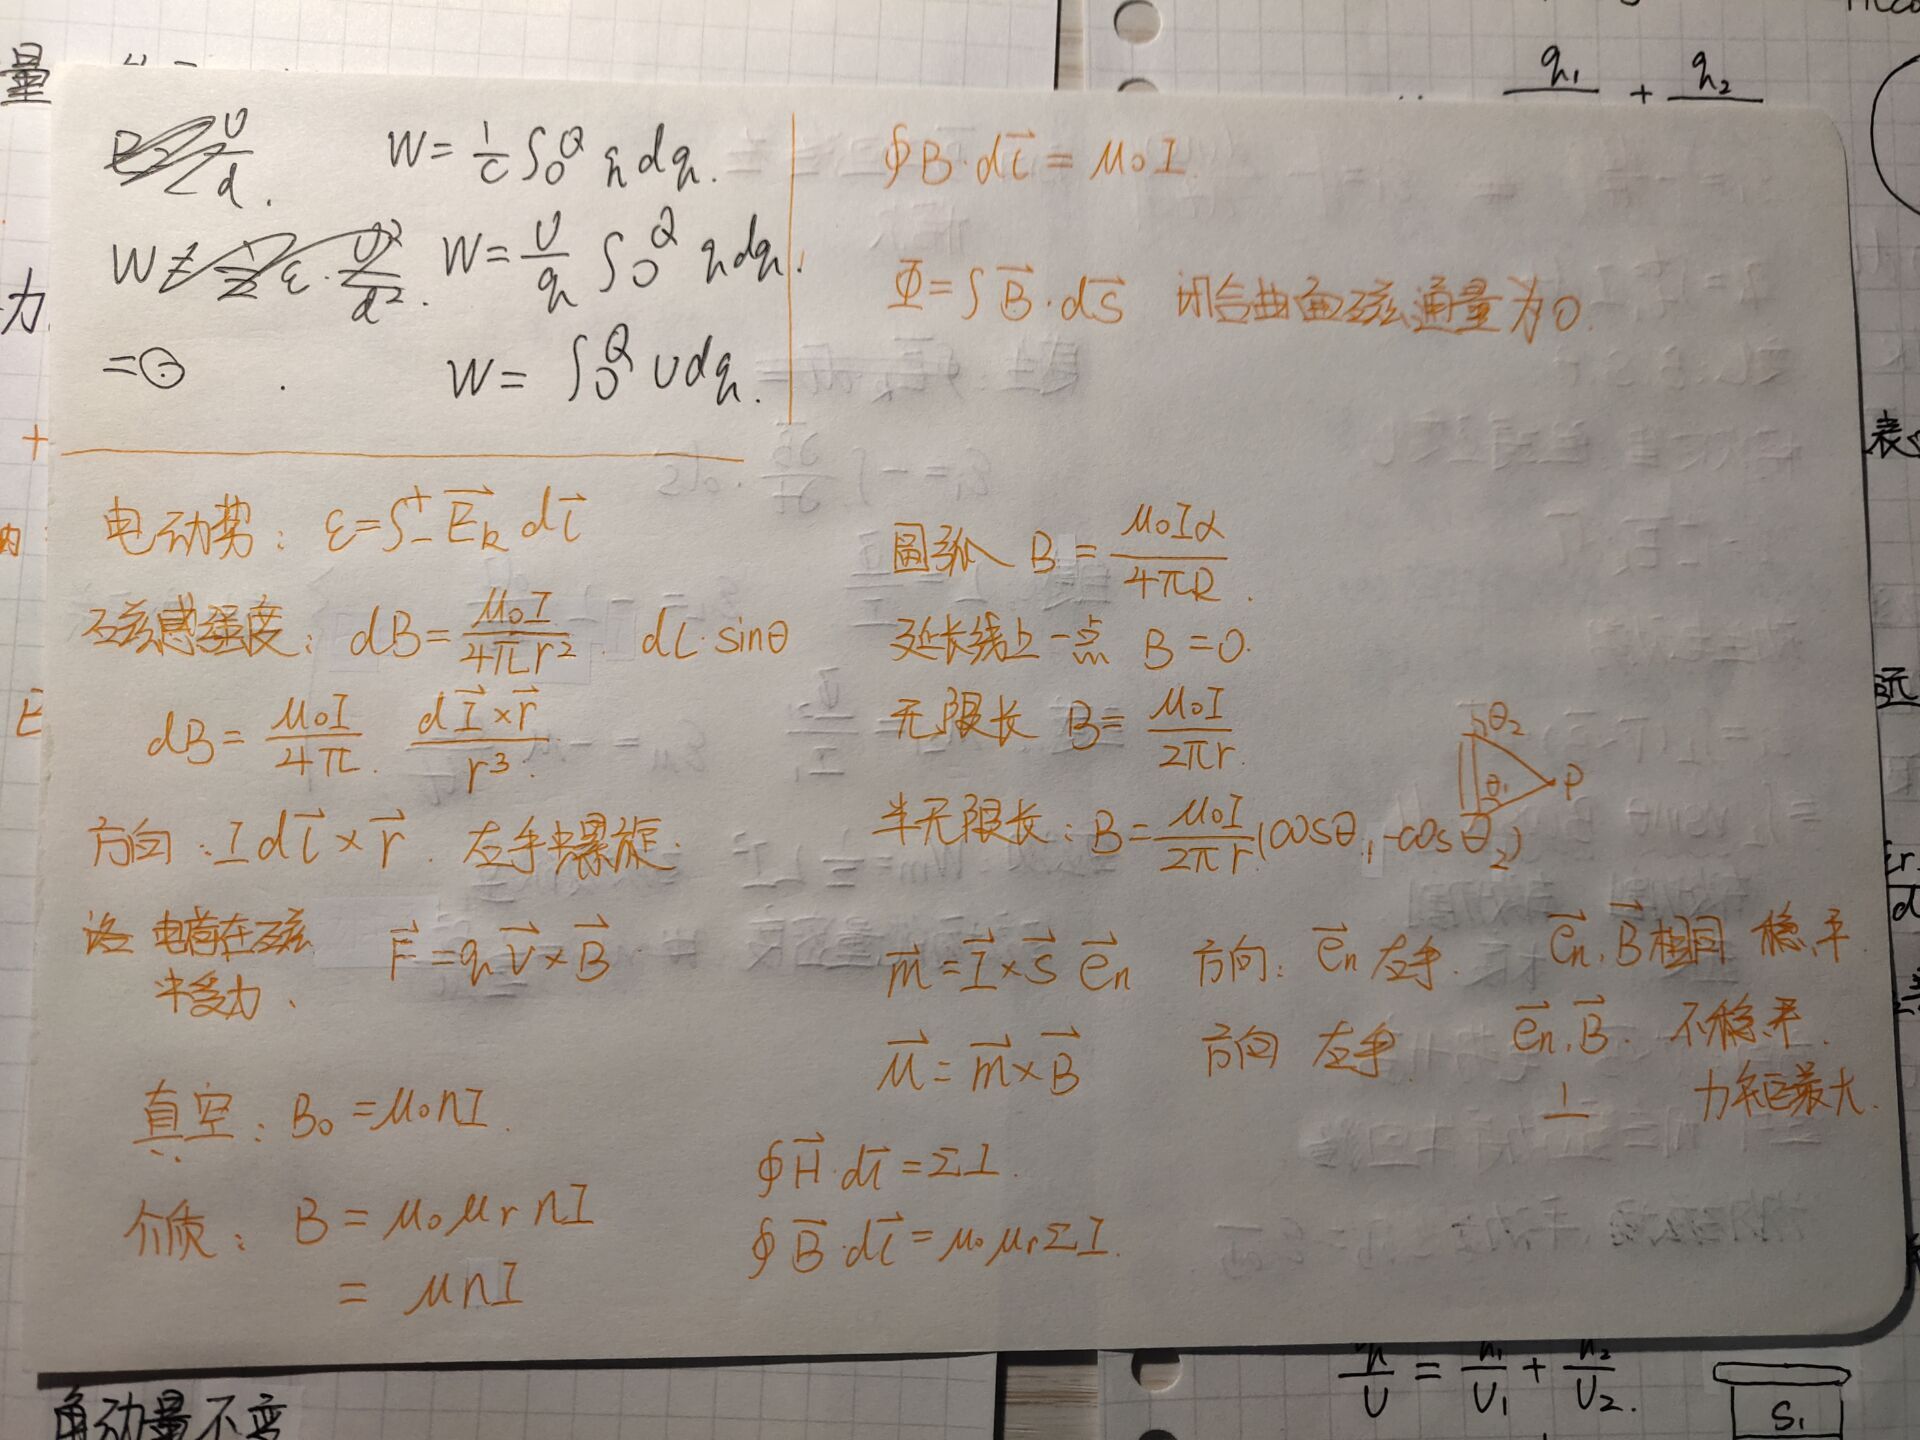 量
力
W = 1/C ∫₀^Q q dq.
W = U/q ∫₀^Q q dq.
W = ∫₀^Q U dq.
∮B·dl⃗ = μ₀I.
Φ = ∫B⃗·dS⃗ 闭合曲面磁通量为0.
电动势: ε = ∫₋⁺ E⃗k dl⃗
磁感强度: dB = μ₀I/4πr² · dl·sinθ
dB = μ₀I/4π · dI⃗×r⃗/r³.
方向: Idl⃗×r⃗. 右手螺旋.
洛 电荷在磁
受力. F⃗ = qv⃗×B⃗
真空: B₀ = μ₀nI.
介质: B = μ₀μr nI
= μnI
圆弧 B = μ₀Iα/4πR.
延长线上一点 B = 0.
无限长 B = μ₀I/2πr.
半无限长: B = μ₀I/2πr (cosθ₁ - cosθ₂)
θ₂
θ₁ P
m⃗ = I⃗×S⃗ e⃗n 方向: e⃗n 右手. e⃗n, B⃗ 相同 稳平.
M⃗ = m⃗×B⃗ 方向 右手. e⃗n, B⃗. 不稳平.
⊥ 力矩最大.
∮H⃗·dl⃗ = ΣI.
∮B⃗·dl⃗ = μ₀μrΣI.
q₁ + q₂
表
远
角动量不变
/U = /U₁ + /U₂.
S₁